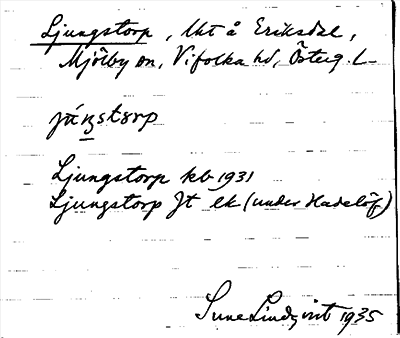 Ljungstorp, lht å Eriksdal,
Mjölby sn, Vifolka hd, Österg. L.
Ljungstorp kb 1931
Ljungstorp Jt ek (under Hadelöf)
Sune Lindqvist 1935